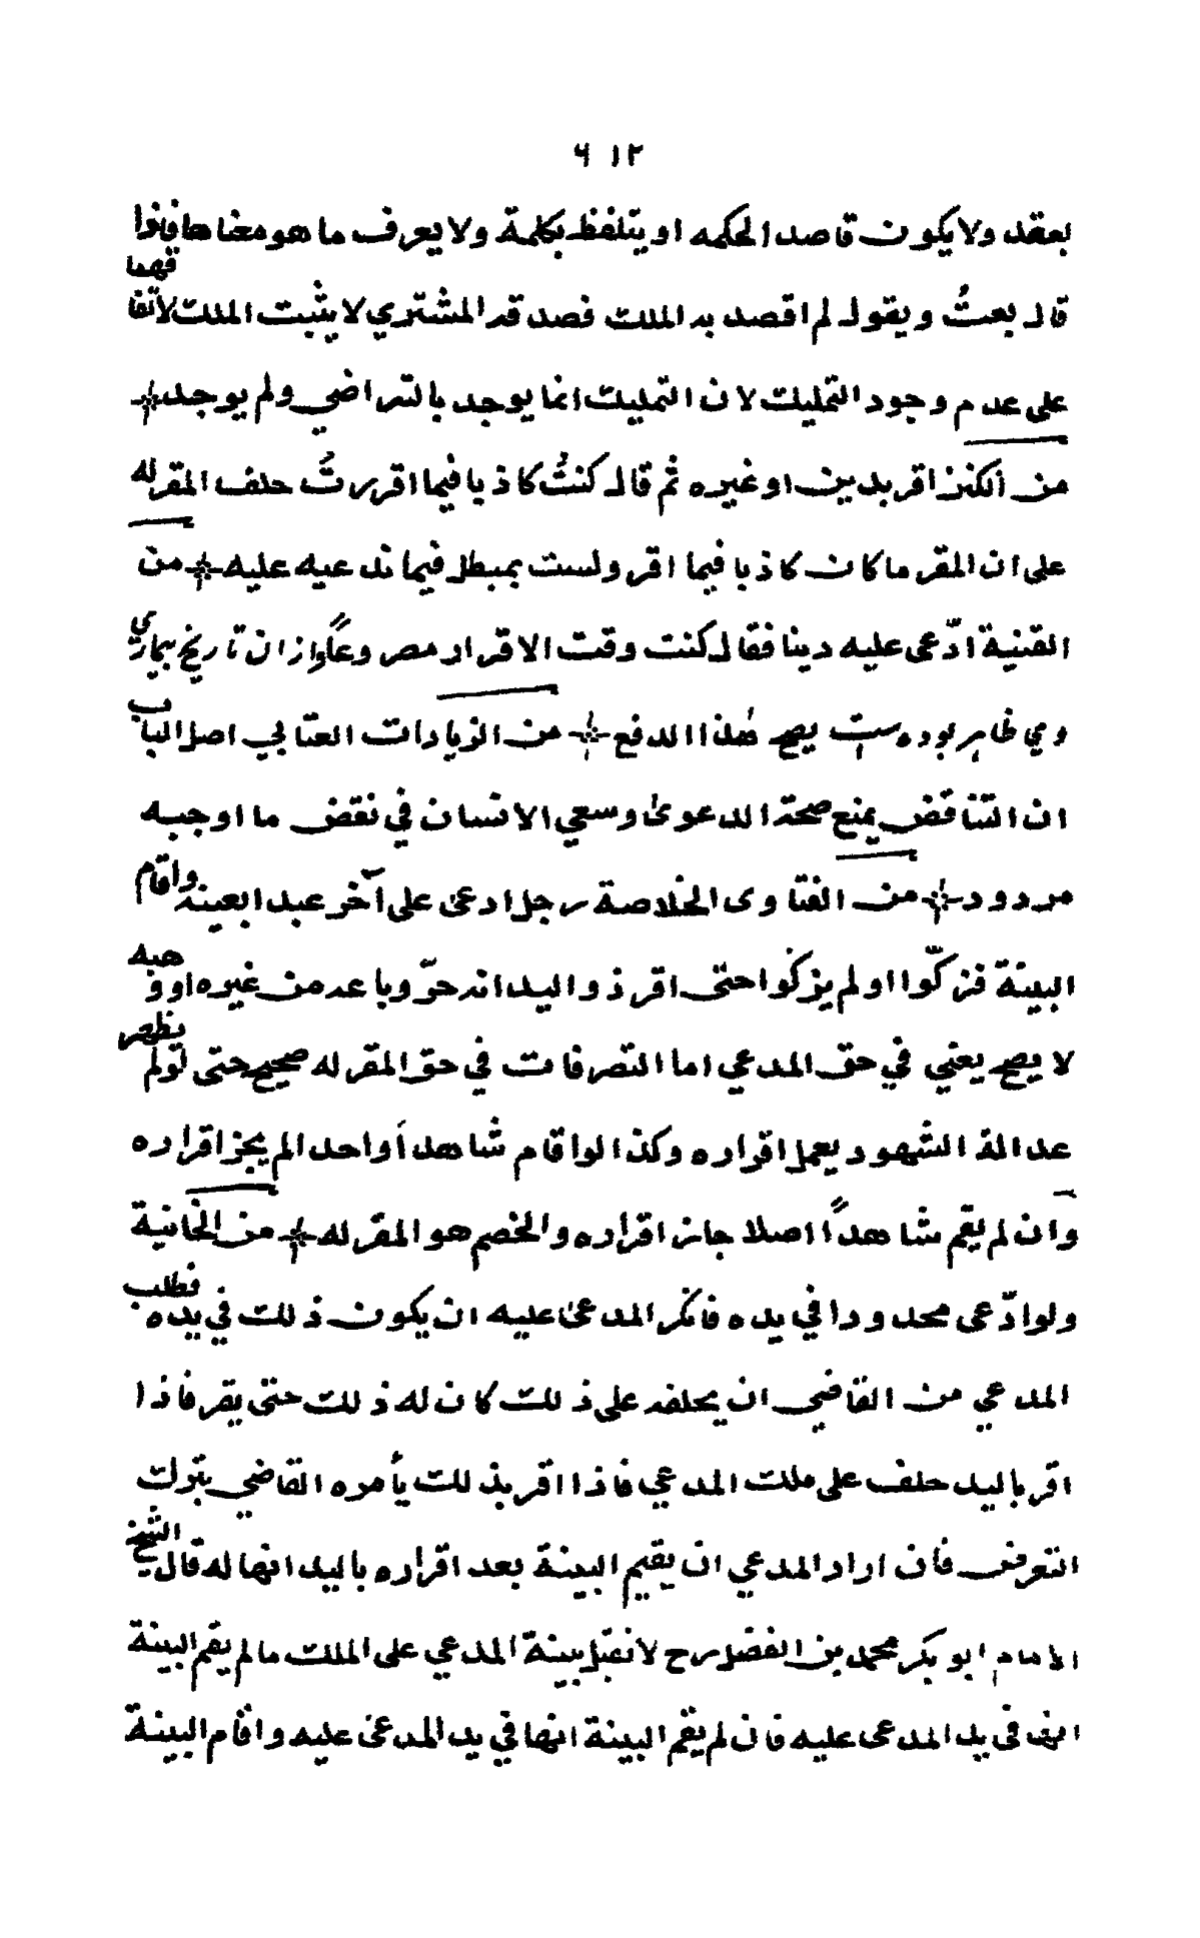 ٦١٢
بعقد ولا يكون قاصدا لحكمه او يتلفظ بكلمة ولا يعرف ما هو معناها فاذا
قال بعتُ ويقول لم اقصد به الملك فصدقه المشتري لا يثبت الملك لاتفاقهما
على عدم وجود التمليك لان التمليك انما يوجد بالتراضي ولم يوجد
من الكنز اقر بدين او غيره ثم قال كنتُ كاذبا فيما اقررتُ حلف المقر له
على ان المقر ما كان كاذبا فيما اقر ولست بمبطل فيما تدعيه عليه من
القنية ادّعى عليه دينا فقال كنت وقت الاقرار مصروعاً واز ان تاريخ بيماري
وي ظاهر بوده ست يصح هذا الدفع من الزيادات العتابي اصل الباب
ان التناقض يمنع صحة الدعوى وسعي الانسان في نقض ما اوجبه
مردود من الفتاوى الخلاصة رجل ادعى على آخر عبدا بعينه واقام
البينة فزكّوا او لم يزكّوا حتى اقر ذو اليد انه حرّ وباعه من غيره او وهبه
لا يصح يعني في حق المدعي اما التصرفات في حق المقر له صحيح حتى لو لم يظهر
عدالة الشهود يعمل اقراره وكذا لو اقام شاهداً واحدا لم يجز اقراره
وان لم يقم شاهداً اصلا جاز اقراره والخصم هو المقر له من الخانية
ولو ادّعى محدودا في يده فانكر المدعى عليه ان يكون ذلك في يده فطلب
المدعي من القاضي ان يحلفه على ذلك كان له ذلك حتى يقر فاذا
اقر باليد حلف على ملك المدعي فاذا اقر بذلك يأمره القاضي بترك
التعرض فان اراد المدعي ان يقيم البينة بعد اقراره باليد انها له قال الشيخ
الامام ابو بكر محمد بن الفضل رح لا تقبل بينة المدعي على الملك ما لم يقم البينة
انها في يد المدعى عليه فان لم يقم البينة انها في يد المدعى عليه واقام البينة